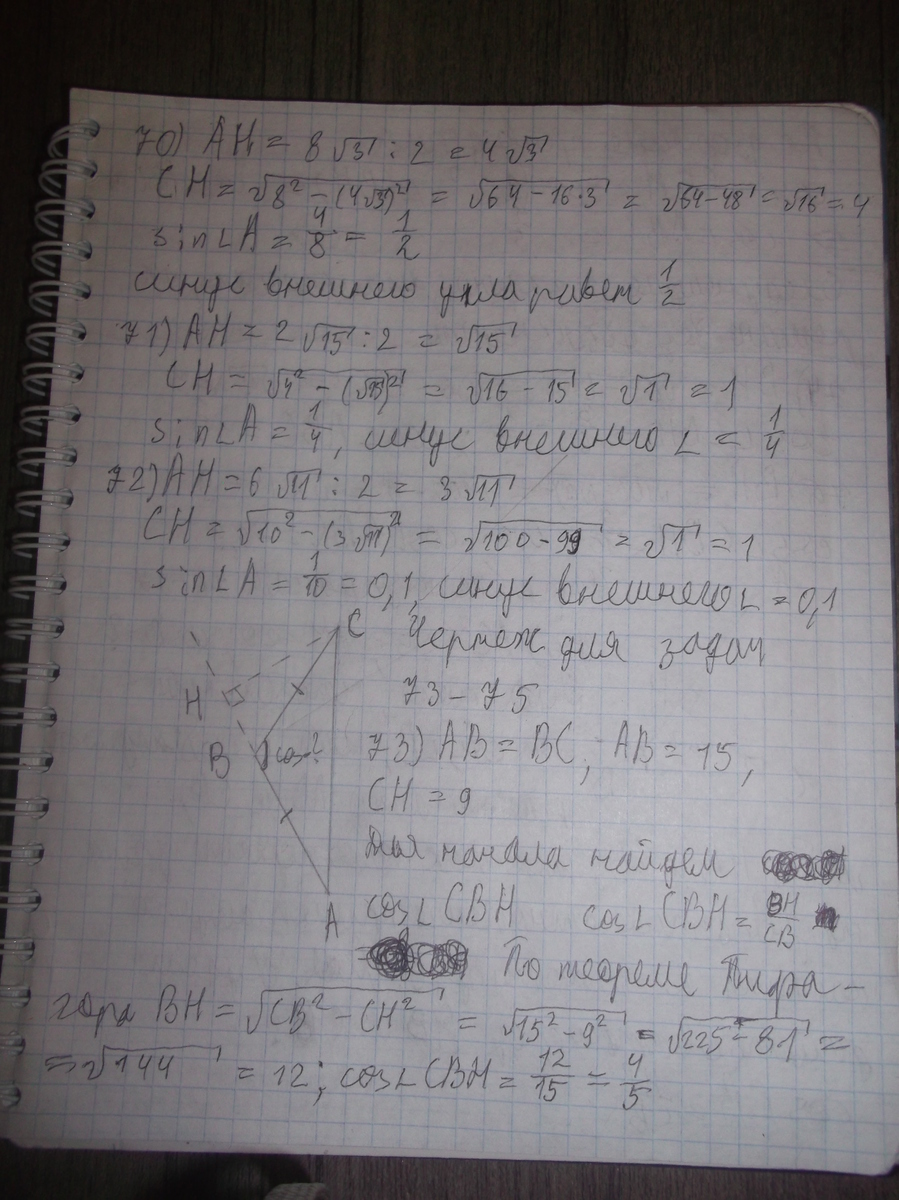 70) AH = 8√3 : 2 = 4√3
CH = √(8² − (4√3)²) = √(64 − 16·3) = √(64−48) = √16 = 4
sin∠A = 4/8 = 1/2
синус внешнего угла равен 1/2
71) AH = 2√15 : 2 = √15
CH = √(4² − (√15)²) = √(16 − 15) = √1 = 1
sin∠A = 1/4, синус внешнего ∠ = 1/4
72) AH = 6√11 : 2 = 3√11
CH = √(10² − (3√11)²) = √(100 − 99) = √1 = 1
sin∠A = 1/10 = 0,1, синус внешнего ∠ = 0,1
C
Чертеж для задач
73 − 75
H
B
cos-?
A
73) AB = BC, AB = 15,
CH = 9
Для начала найдем
cos∠CBH cos∠CBH = BH/CB
По теореме Пифа-
гора BH = √(CB² − CH²) = √(15² − 9²) = √(225 − 81) =
= √144 = 12; cos∠CBH = 12/15 = 4/5